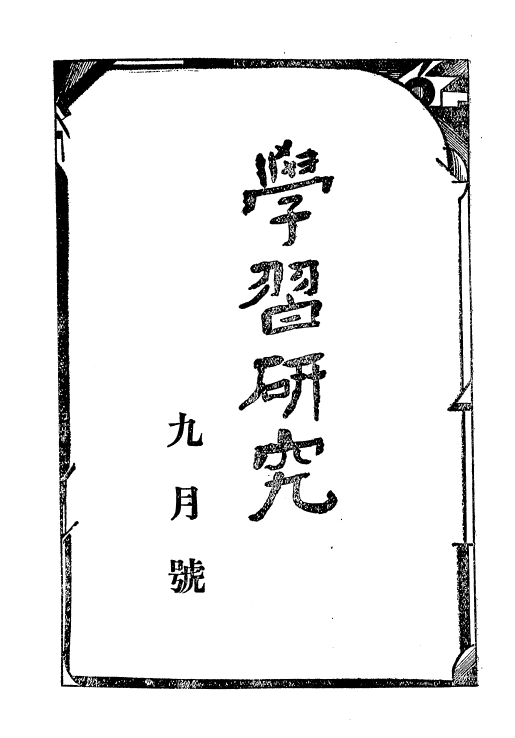 學習研究
九月號